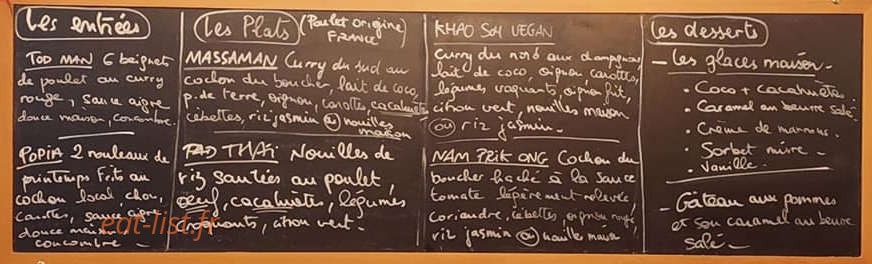 Les entrées
TOD MAN 6 beignets
de poulet au curry
rouge, sauce aigre
douce maison, concombre.
POPIA 2 rouleaux de
printemps frits au
cochon local, chou,
carottes, sauce aigre
douce maison
concombre -
Les Plats (Poulet origine
FRANCE)
MASSAMAN Curry du sud au
cochon du boucher, lait de coco,
p. de terre, oignon, carottes, cacahuètes
cébettes, riz jasmin ou nouilles
maison
PAD THAÏ Nouilles de
riz sautées au poulet,
oeuf, cacahuètes, légumes
croquants, citron vert.
KHAO SOY VEGAN
Curry du nord aux champignons
lait de coco, oignon, carottes,
légumes croquants, oignon frit,
citron vert, nouilles maison
ou riz jasmin.
NAM PRIK ONG Cochon du
boucher haché à la sauce
tomate légèrement relevée,
coriandre, cébettes oignon rouge,
riz jasmin ou nouilles maison
Les desserts
- Les glaces maison.
• Coco + cacahuètes
• Caramel au beurre salé.
• Crème de marrons.
• Sorbet
• Vanille.
- Gâteau aux pommes
et son caramel au beurre
salé -
eat-list.fr